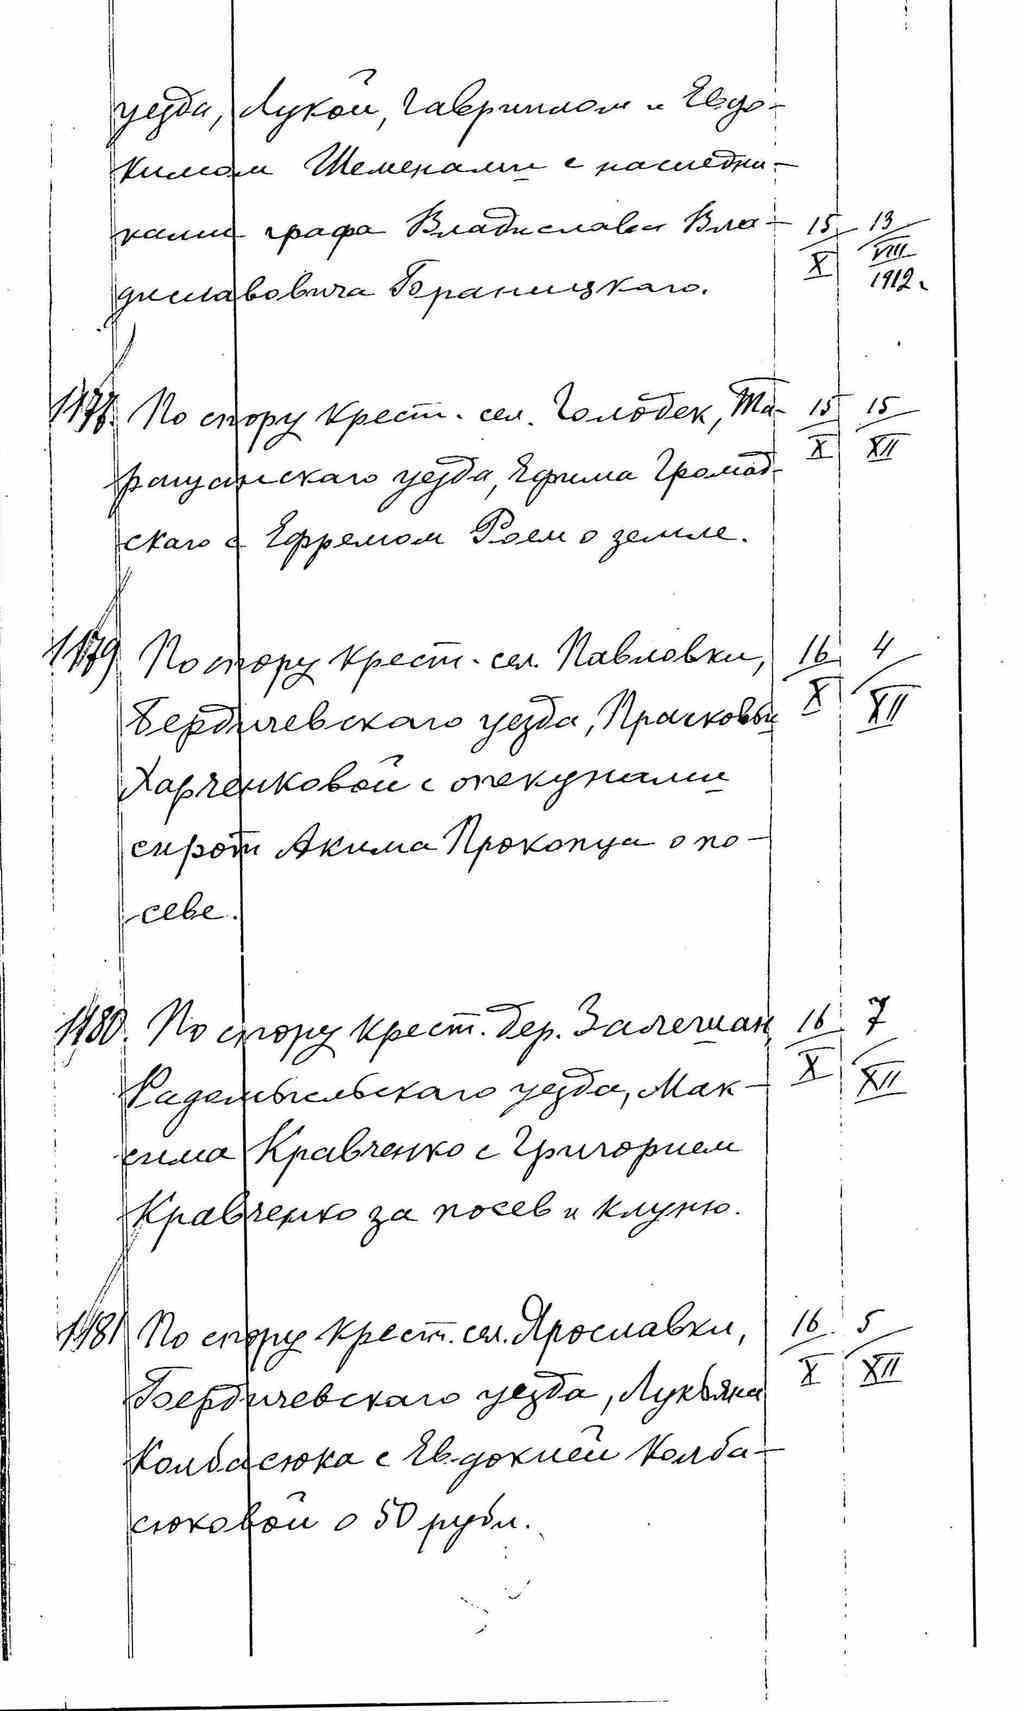 уезда, Лукой, Гавриилом и Евдо-
кимом Шеменами с наследни-
ками графа Владислава Вла-
диславовича Браницкого.
15/X 13/VIII 1912 г.
1178. По спору крест. сел. Голодек, Та-
ращанскаго уезда, Ефима Громад-
скаго с Ефремом Роем о земле.
15/X 15/XII
1179 По спору крест. сел. Павловки,
Бердичевскаго уезда, Прасковьи
Харченковой с опекунами
сирот Акима Прокопца о по-
севе.
16/X 4/XII
1180. По спору крест. дер. Залешан,
Радомысльскаго уезда, Мак-
сима Кравченко с Григорием
Кравченко за посев и клуню.
16/X 7/XII
1181 По спору крест. сел. Ярославки,
Бердичевскаго уезда, Лукьяна
Колбасюка с Евдокией Колба-
сюковой о 50 рубл.
16/X 5/XII